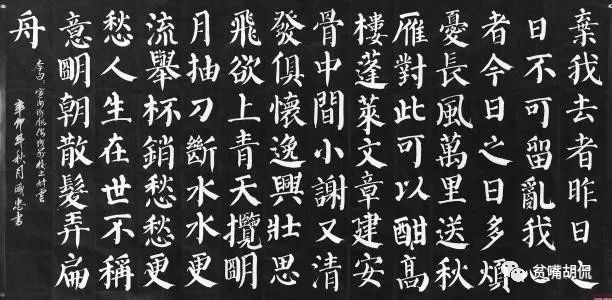 棄我去者昨日之
日不可留亂我心
者今日之日多煩
憂長風萬里送秋
雁對此可以酣高
樓蓬萊文章建安
骨中間小謝又清
發俱懷逸興壯思
飛欲上青天攬明
月抽刀斷水水更
流舉杯銷愁愁更
愁人生在世不稱
意明朝散髮弄扁
舟
李白
辛卯年秋月 忠書
贫嘴胡侃